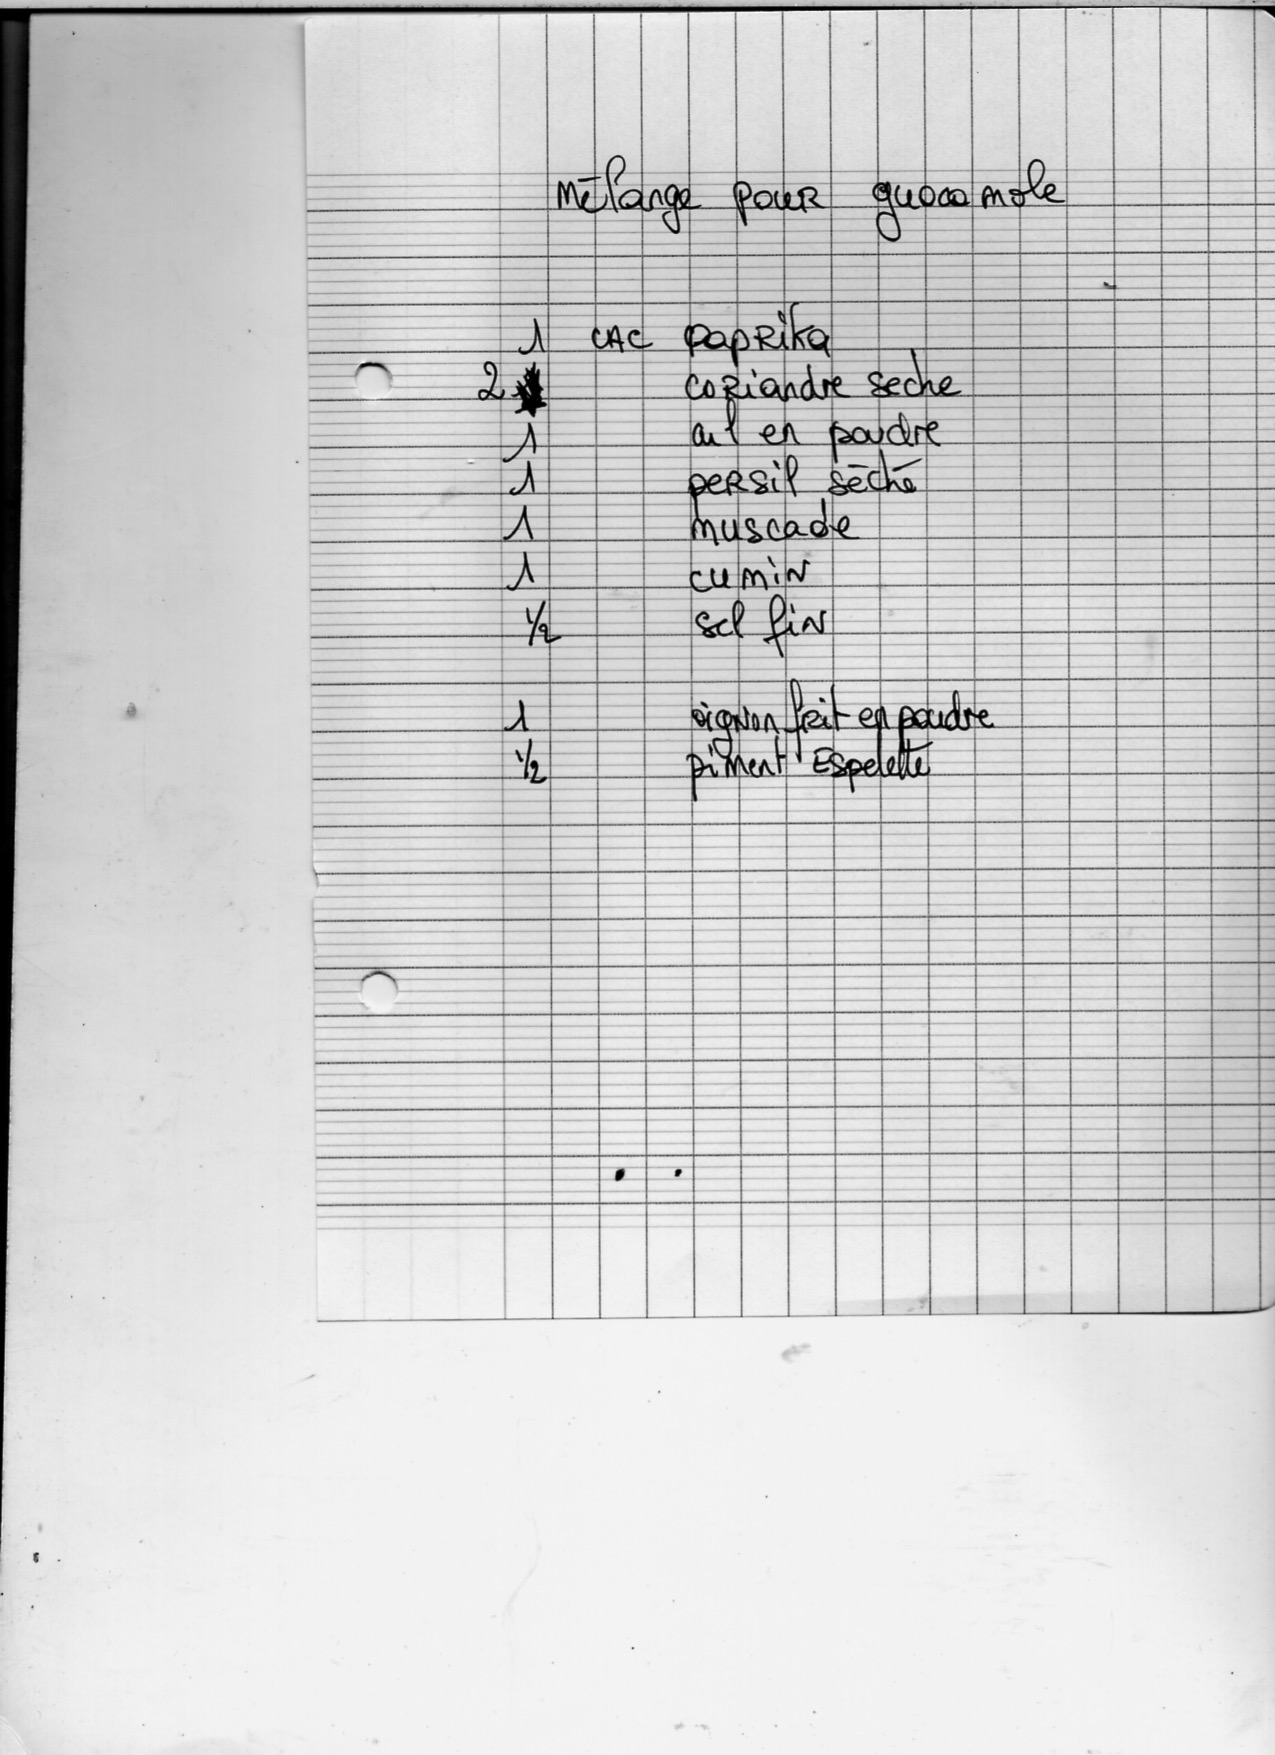 Mélange pour guacamole
1 CAC paprika
2 coriandre seche
1 ail en poudre
1 persil séché
1 muscade
1 cumin
1/2 sel fin
1 oignon frit en poudre
1/2 piment Espelette